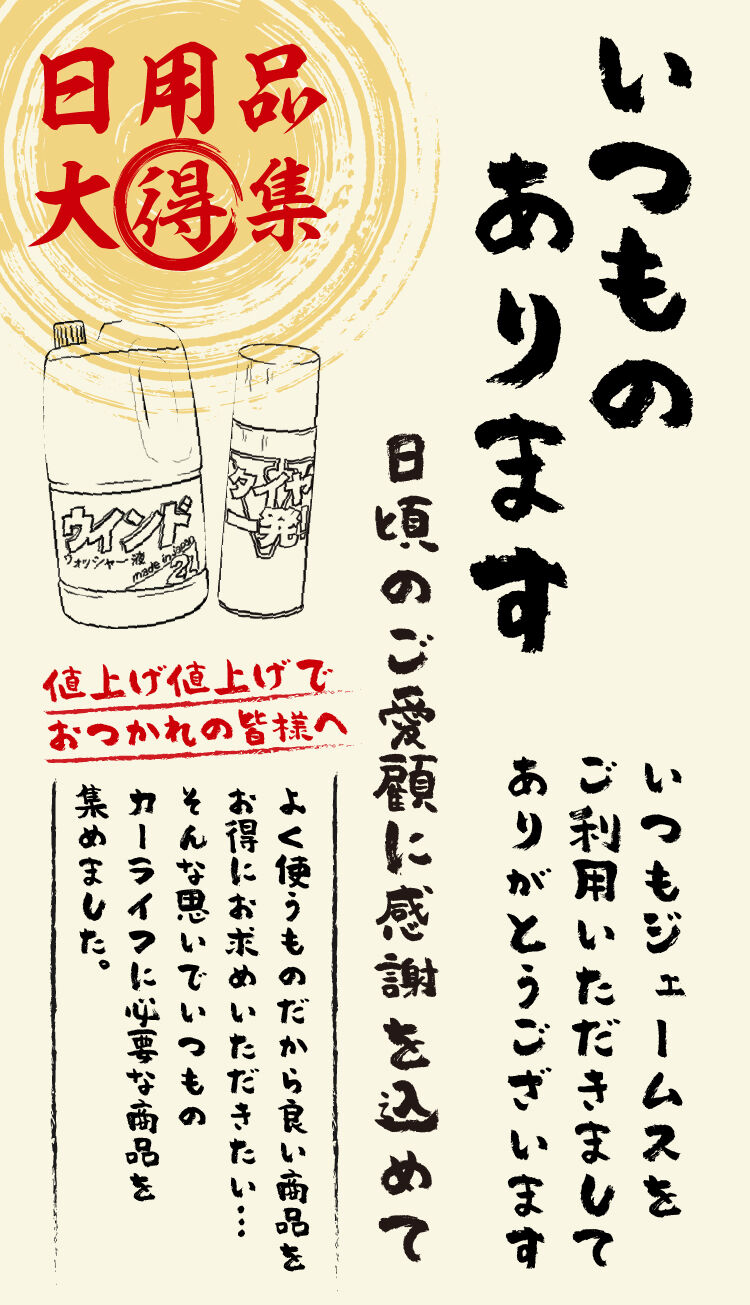 いつもの
あります
いつもジェームスを
ご利用いただきまして
ありがとうございます
日頃のご愛顧に感謝を込めて
日用品
大得集
ウインド
ウォッシャー液
made in japan
2L
タイヤ
一発!
値上げ値上げで
おつかれの皆様へ
よく使うものだから良い商品を
お得にお求めいただきたい…
そんな思いでいつもの
カーライフに必要な商品を
集めました。